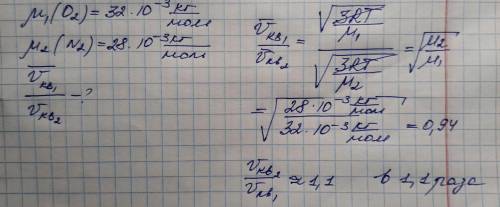 μ₁(O₂)=32·10⁻³ кг/моль
μ₂(N₂)=28·10⁻³ кг/моль
v̅кв₁/vкв₂ - ?
vкв₁/vкв₂ = √(3RT/μ₁)/√(3RT/μ₂) = √(μ₂/μ₁)
= √(28·10⁻³ кг/моль / 32·10⁻³ кг/моль) = 0,94
vкв₂/vкв₁ ≈ 1,1 в 1,1 раза